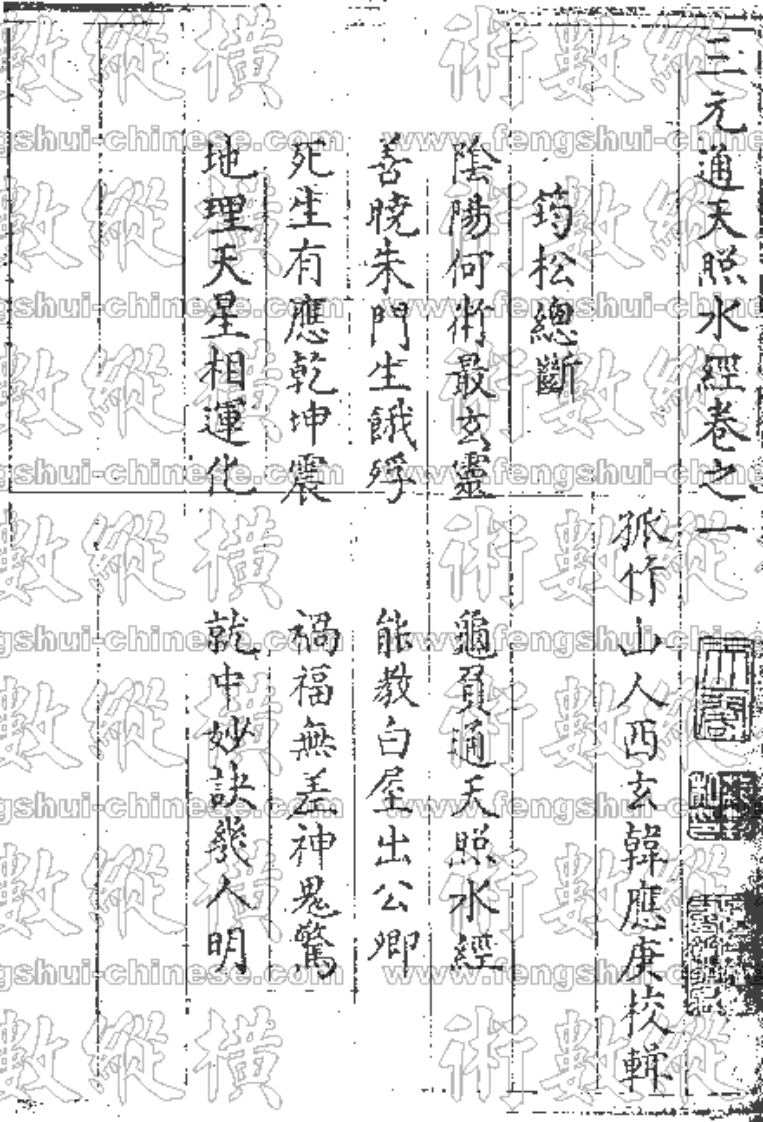 三元通天照水經卷之一
孤竹山人西玄韓應庚校輯
筠松總斷
陰陽何術最玄靈 龜負通天照水經
善曉朱門生餓殍 能教白屋出公卿
死生有應乾坤震 禍福無差神鬼驚
地理天星相運化 就中妙訣幾人明
術數縱橫
www.fengshui-chinese.com